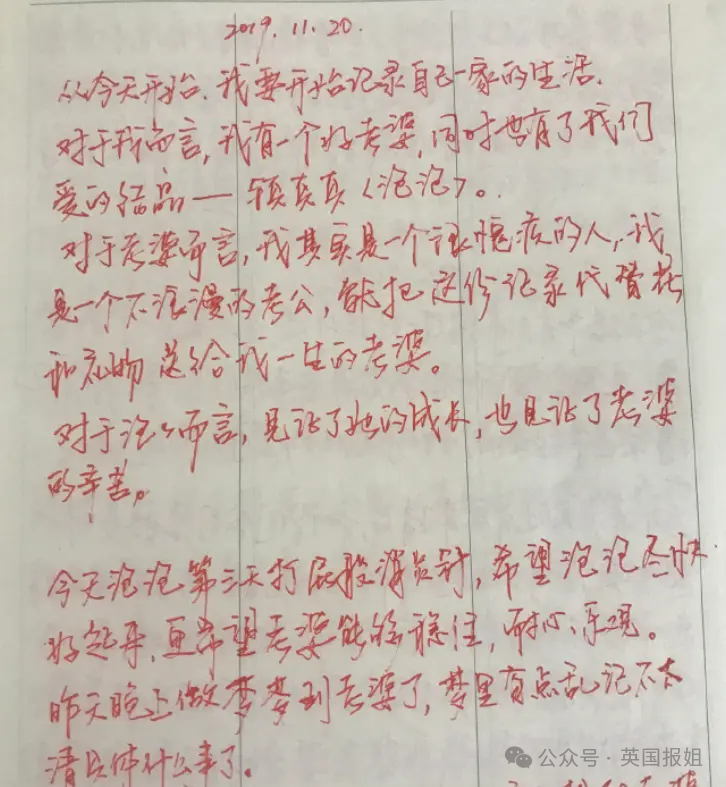 2019.11.20.
从今天开始.我要开始记录自己一家的生活.
对于我而言,我有一个好老婆,同时也有了我们
爱的结晶——真真<泡泡>。
对于老婆而言,我其实是一个很愧疚的人,我
是一个不浪漫的老公,能把这份记录代替花
和礼物送给我一生的老婆。
对于泡々而言,见证了她的成长,也见证了老婆
的辛苦。
今天泡泡第三天打屁股消炎针,希望泡泡尽快
好起来,更希望老婆能够稳住,耐心、乐观。
昨天晚上做梦梦到老婆了,梦里有点乱记不太
清具体什么事了。
公众号·英国报姐